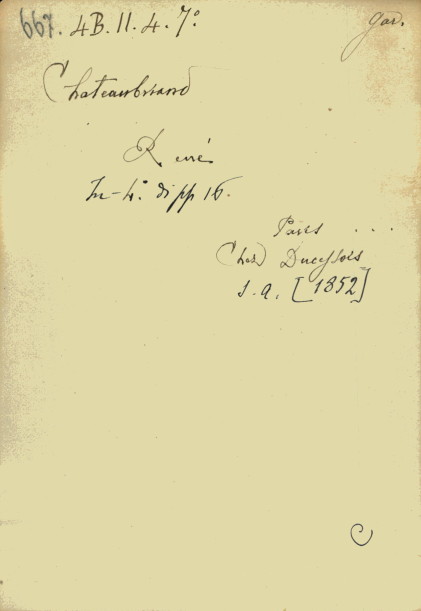 667. 4B. 11. 4. 7º
gar.
Chateaubriand
René
In-4º di pp 16.
Paris ...
Chez Ducessois
s. a. [1852]
C